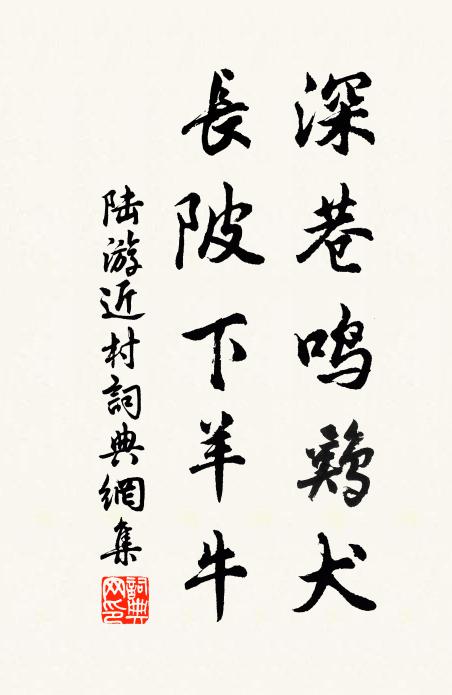 深巷鸣鷄犬
長陂下羊牛
陆游近村詞典網集
詞典网印